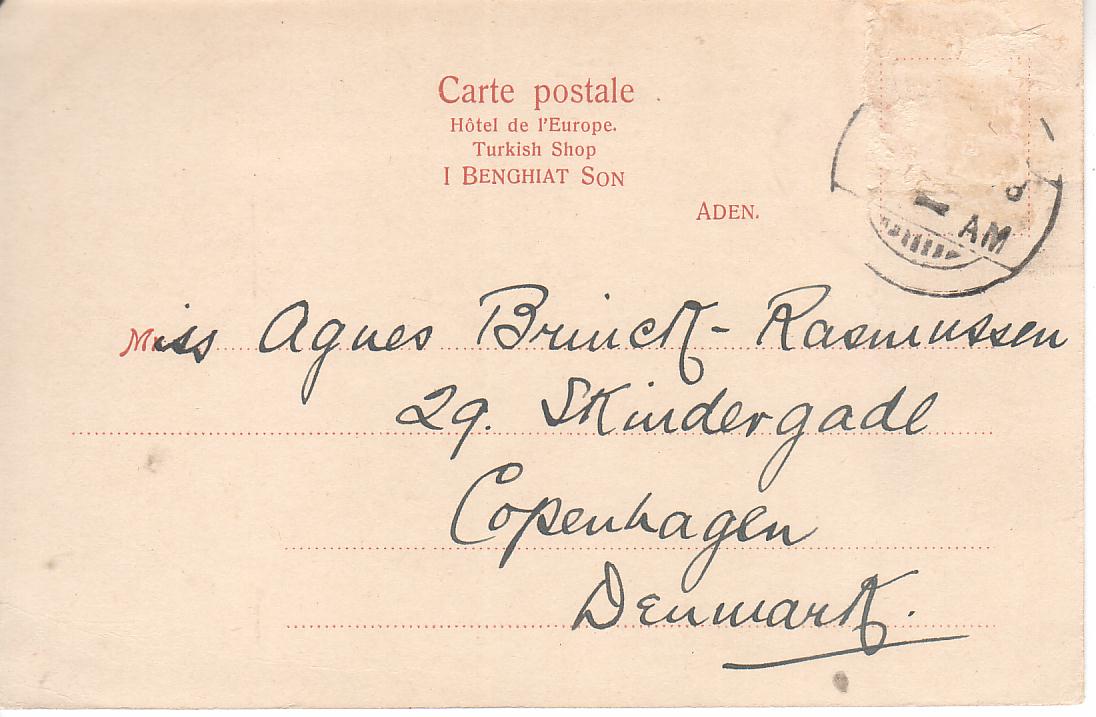 Carte postale
Hôtel de l'Europe.
Turkish Shop
I BENGHIAT SON
ADEN.
AM
Miss Agnes Brinck-Rasmussen
29. Skindergade
Copenhagen
Denmark.